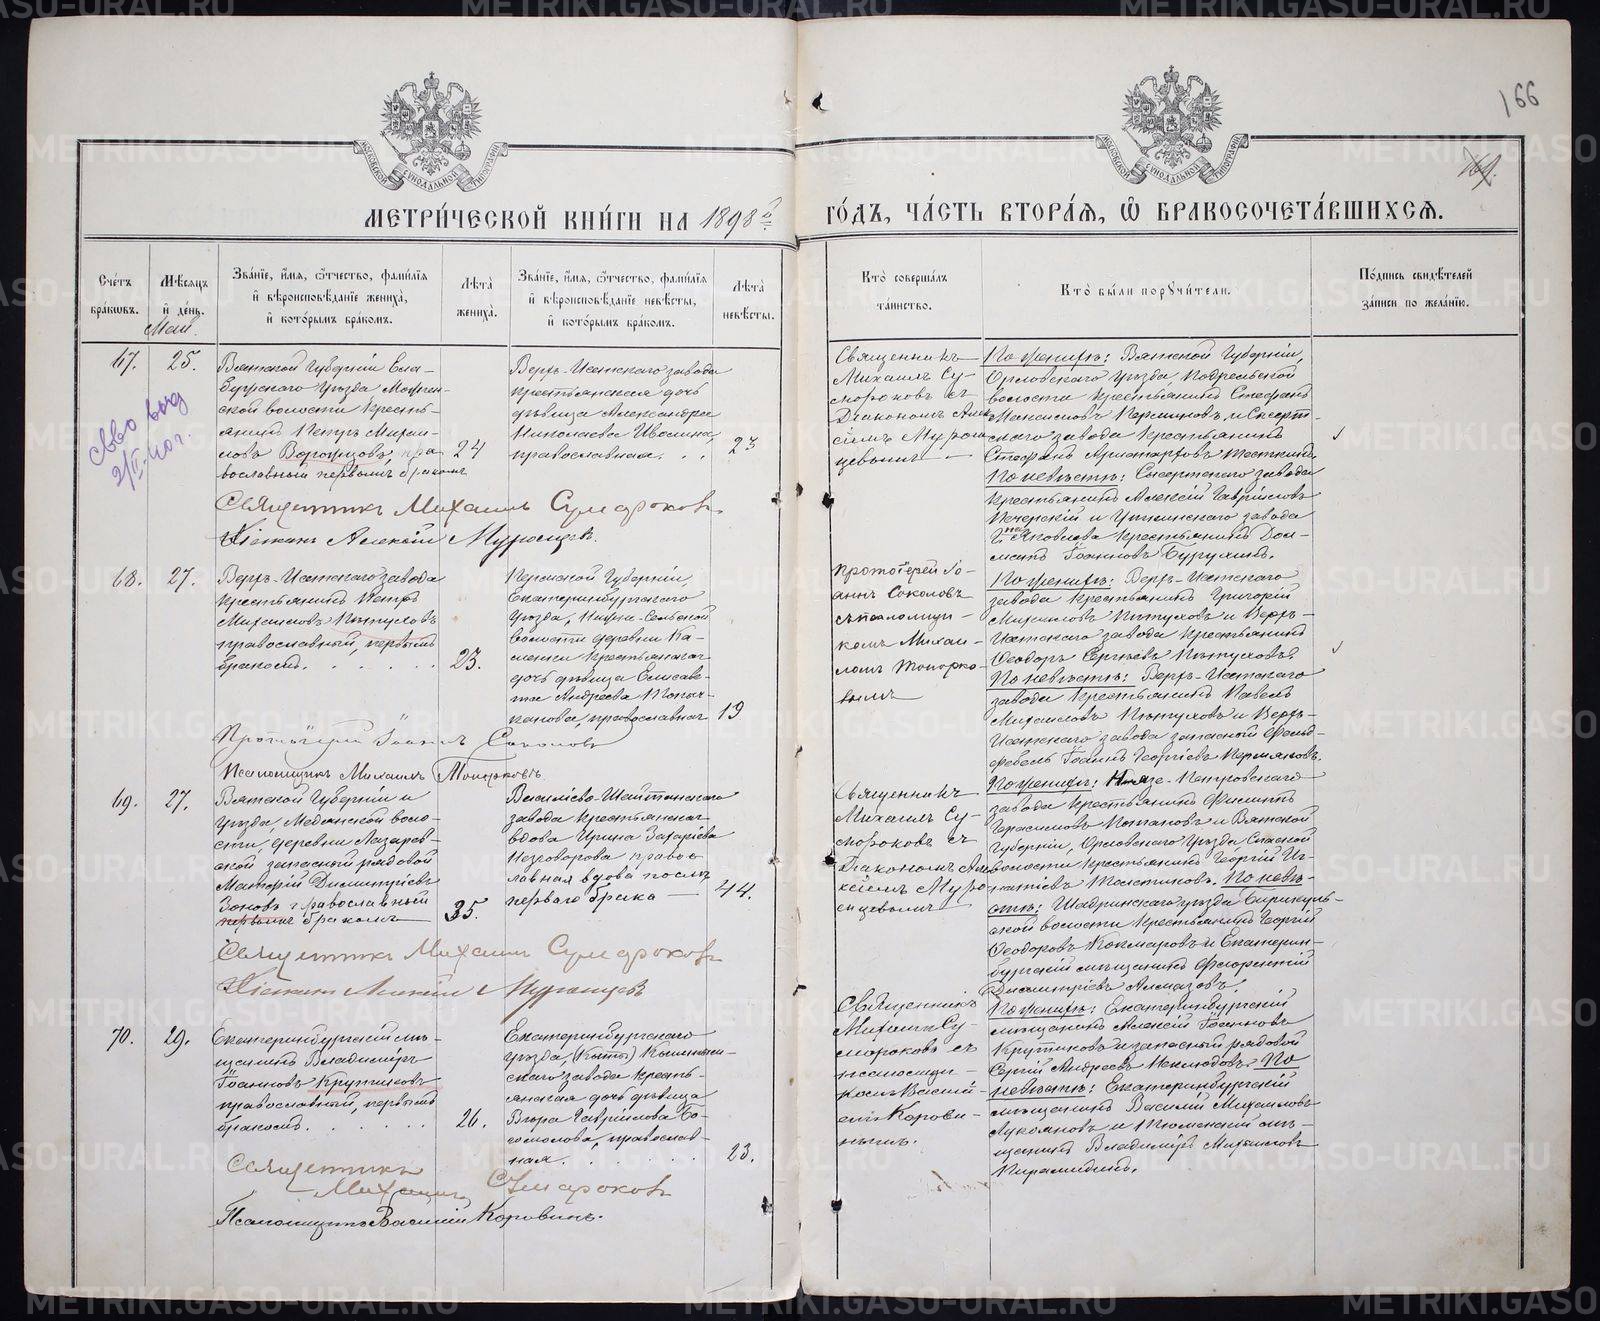 166
МЕТРИ́ЧЕСКОЙ КНИ́ГИ НА 1898й
ГО́ДЪ, ЧА́СТЬ ВТОРА́Я, Ѡ҆ БРАКОСОЧЕТА́ВШИХСЯ.
Сче́тъ бра́кѡвъ.
Мѣ́сяцъ и҆ де́нь.
Зва́нїе, и҆́мя, ѻ҆́тчество, фами́лїя и҆ вѣроисповѣ́данїе жениха̀, и҆ кото́рымъ бра́комъ.
Лѣ́та жениха̀.
Зва́нїе, и҆́мя, ѻ҆́тчество, фами́лїя и҆ вѣроисповѣ́данїе невѣ́сты, и҆ кото́рымъ бра́комъ.
Лѣ́та невѣ́сты.
Кто̀ соверша́лъ та́инство.
Кто̀ бы́ли порꙋчи́тели.
По́дпись свидѣ́телей за́писи по жела́нїю.
Май.
67.
25.
Вятской Губерніи Ела-
бужскаго уѣзда
ской волости кресть-
янинъ Петръ Михаи-
ловъ Воронцовъ, пра-
вославный первымъ бракомъ
24
Верхъ-Исетскаго завода
крестьянская дочь
дѣвица Александра
Николаева Ившина,
православная.
23
Священникъ
Михаилъ Су-
мороковъ съ
Діакономъ Алек-
сѣемъ Муром-
цевымъ
По женихѣ: Вятской Губерніи,
Орловскаго уѣзда, Подрельской
волости крестьянинъ Стефанъ
Максимовъ и Сысерт-
скаго завода крестьянинъ
Стефанъ Аристарховъ
По невѣстѣ: Сысертскаго завода
крестьянинъ Алексѣй Гавріиловъ
Печерскій и Уткинскаго завода
Яковлева крестьянинъ Дои-
ментъ Іоанновъ Бурухинъ.
Священникъ Михаилъ Сумороковъ
Діаконъ Алексій Муромцевъ.
68.
27.
Верхъ-Исетскаго завода
крестьянинъ Петръ
Михаиловъ Пѣтуховъ
православный, первымъ
бракомъ.
23.
Пермской Губерніи,
Екатеринбургскаго
уѣзда, Нижне-Сельской
волости деревни Ка-
менки крестьянская
дочь дѣвица Елисаве-
та Андреева
православная
19
Протоіерей Іо-
аннъ Соколовъ
съ псаломщи-
комъ Михаи-
ломъ Топорко-
вымъ
По женихѣ: Верхъ-Исетскаго
завода крестьянинъ Григорій
Михаиловъ Пѣтуховъ и Верхъ-
Исетскаго завода крестьянинъ
Ѳеодоръ Сергѣевъ Пѣтуховъ.
По невѣстѣ: Верхъ-Исетскаго
завода крестьянинъ Павелъ
Михаиловъ Пѣтуховъ и Верхъ-
Исетскаго завода запасный фельд-
фебель Іоаннъ Георгіевъ Пермяковъ.
Протоіерей Іоаннъ Соколовъ
Псаломщикъ Михаилъ Топорковъ
69.
27.
Вятской Губерніи и
уѣзда, Медянской воло-
сти, деревни Лазарев-
ской запасный рядовой
Матѳій Димитріевъ
Зоновъ православный
первымъ бракомъ
35.
Васильево-Шайтанскаго
завода крестьянская
вдова Ирина Захаріева
Незговорова правос-
лавная вдова послѣ
перваго брака
44.
Священникъ
Михаилъ Су-
мороковъ съ
Діакономъ Але-
ксѣемъ Муро-
мцевымъ
По женихѣ: Нязе-Петровскаго
завода крестьянинъ Филиппъ
Герасимовъ Потаповъ и Вятской
Губерніи, Орловскаго уѣзда, Спасской
волости крестьянинъ Георгій Иг-
натіевъ По невѣ-
стѣ: Шадринскаго уѣзда
ской волости крестьянинъ Георгій
Ѳеодоровъ и Екатерин-
бургскій мѣщанинъ Флорентій
Димитріевъ Алмазовъ.
Священникъ Михаилъ Сумороковъ
Діаконъ Алексій Муромцевъ
70.
29.
Екатеринбургскій мѣ-
щанинъ Владиміръ
Іоанновъ Крутиковъ
православный, первымъ
бракомъ.
26.
Екатеринбургскаго
уѣзда,
скаго завода кресть-
янская дочь дѣвица
Вѣра Гавріилова Бо-
гомолова, православ-
ная.
23.
Священникъ
Михаилъ Су-
мороковъ съ
псаломщи-
комъ Василі-
емъ Корови-
нымъ.
По женихѣ: Екатеринбургскій
мѣщанинъ Алексѣй Іоанновъ
Крутиковъ и запасный рядовой
Сергій Андреевъ Неклюдовъ По
невѣстѣ: Екатеринбургскій
мѣщанинъ Василій Михаиловъ
Лукояновъ и Тюменскій мѣ-
щанинъ Владиміръ Михаиловъ
Пирамидинъ.
Священникъ
Михаилъ Сумороковъ
Псаломщикъ Василій Коровинъ.
METRIKI.GASO-URAL.RU